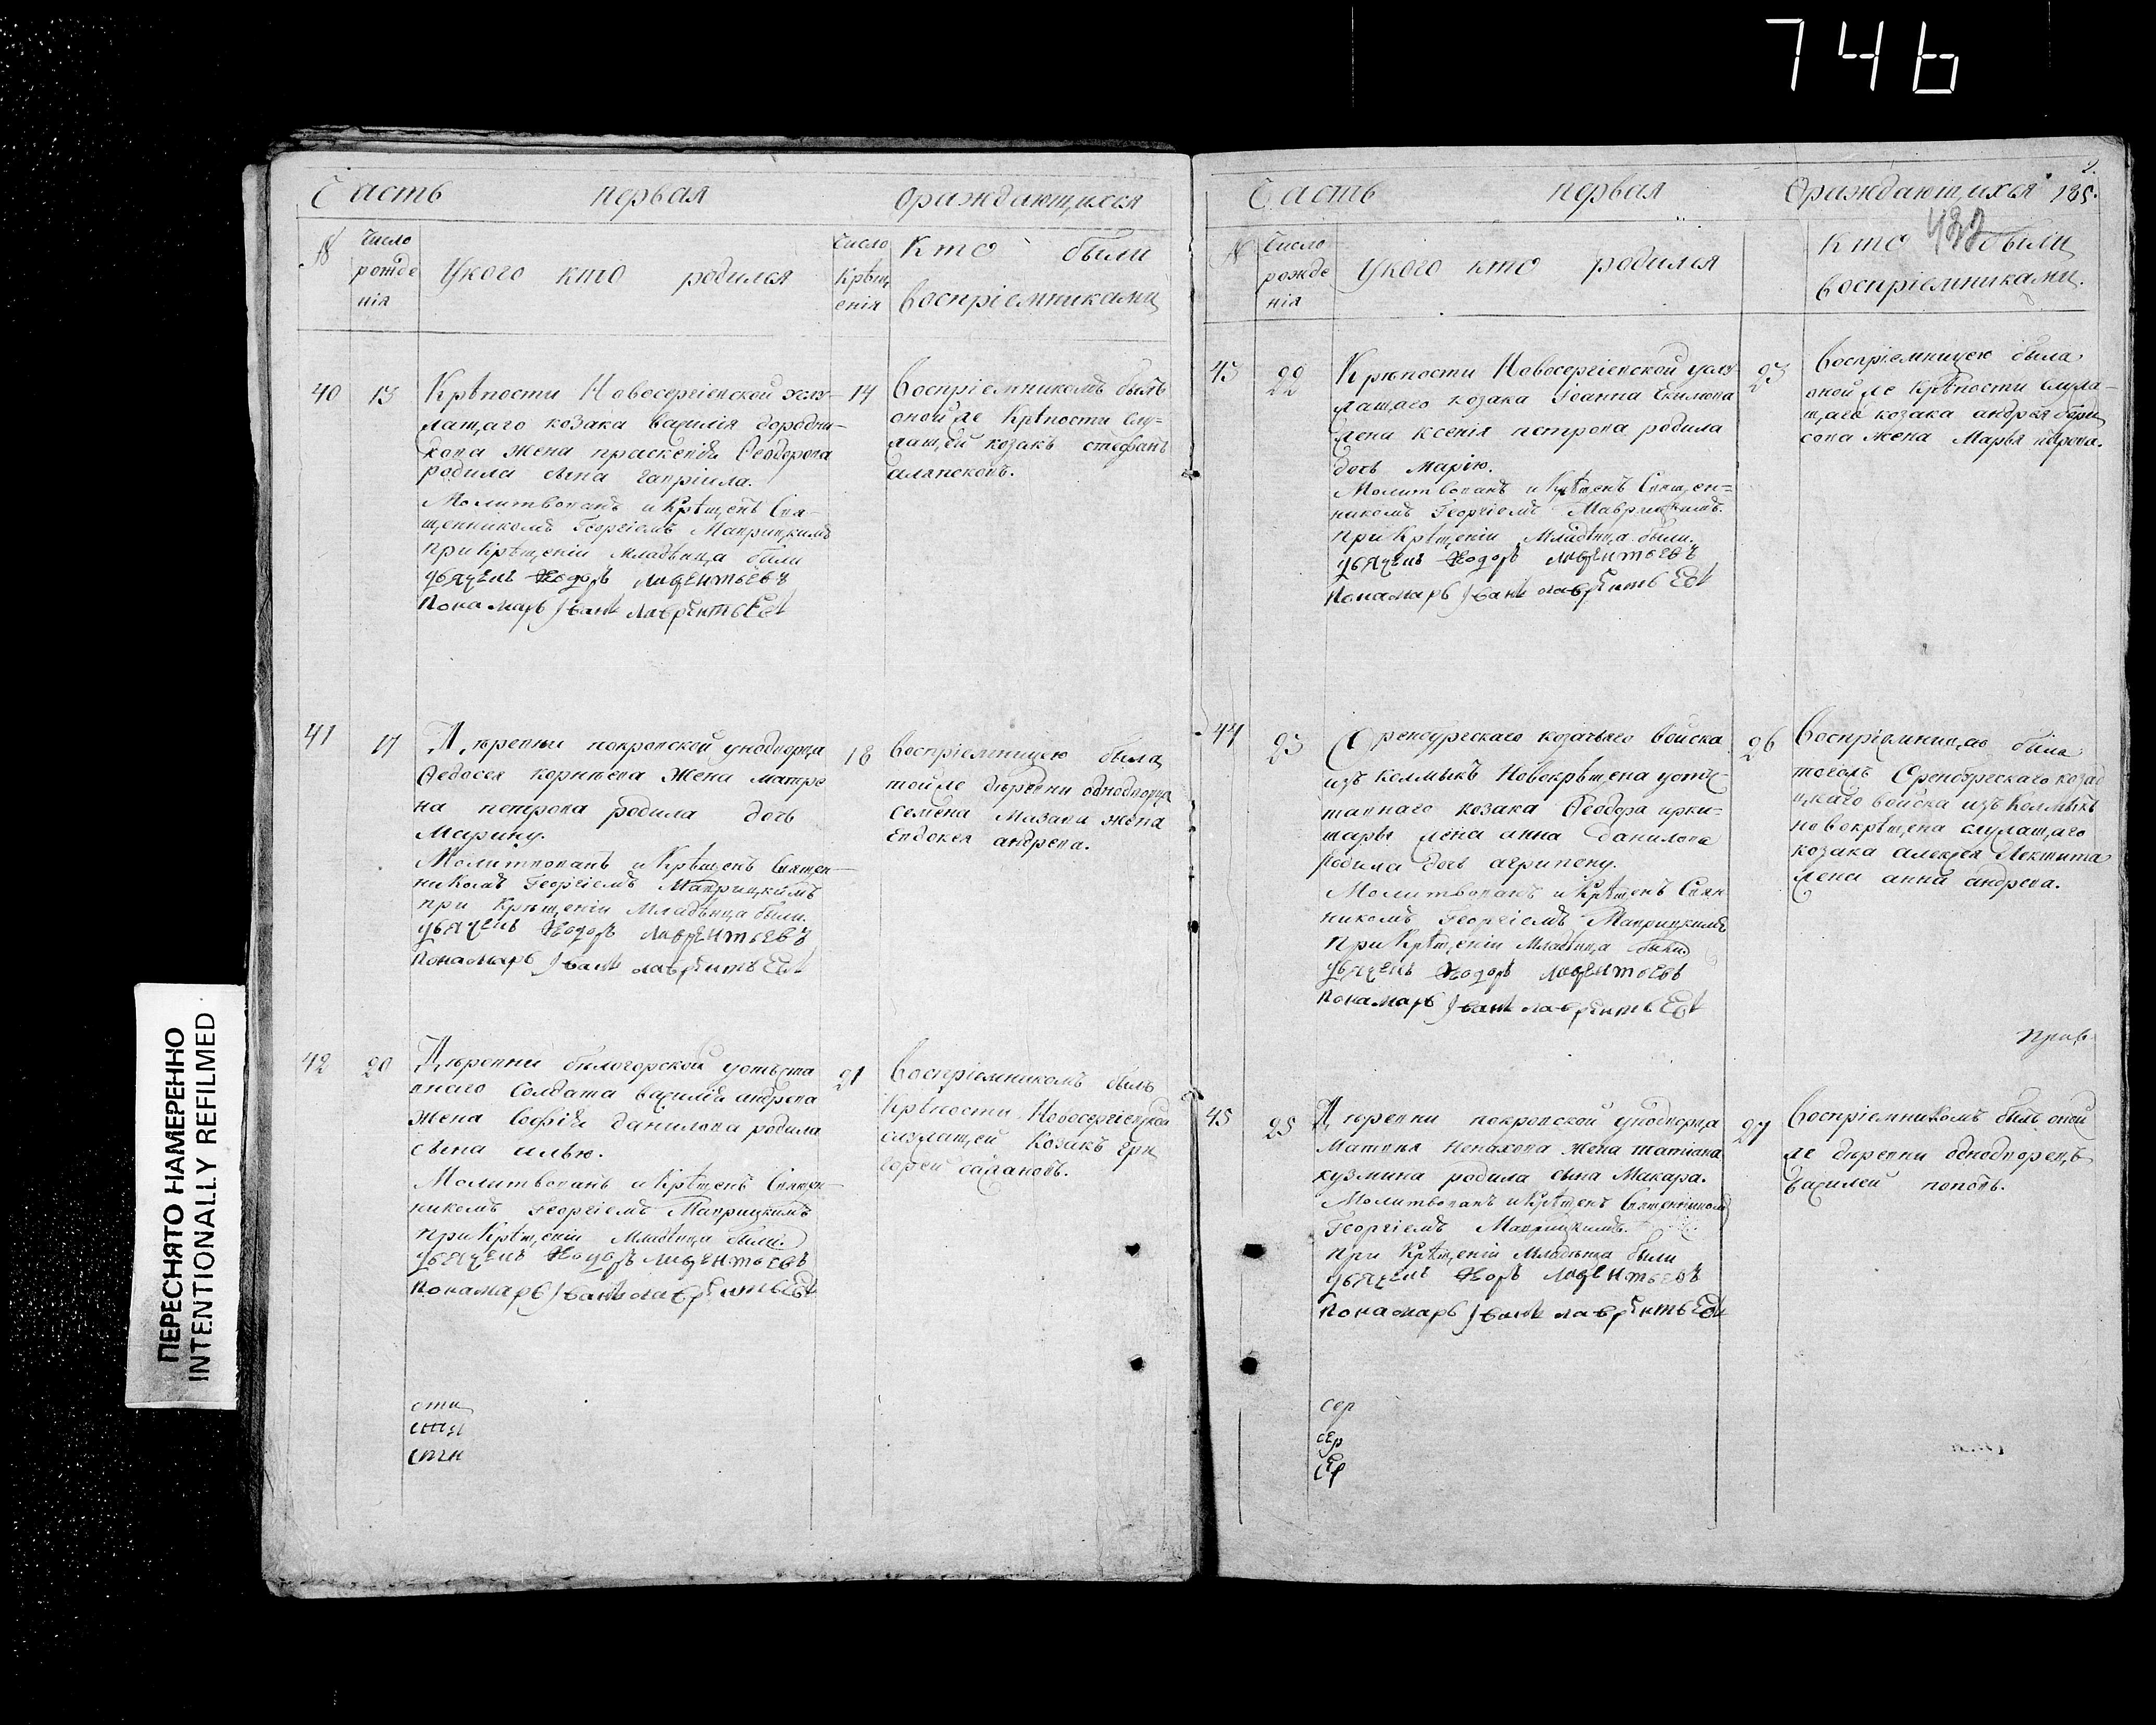 746
Часть первая ораждающихся
№
Число рожденія
Укого кто родился
Число Крѣщенія
Кто были воспріемниками
40 13
Крѣпости Новосергіевской служ-
лащаго козака василія дородни-
кова жена праскевія Ѳеодорова
родила сына гавріила.
Молитвованъ и Крѣщенъ Свя-
щенникомъ Георгіемъ Маврицкимъ
при Крѣщеніи младѣнца были
дьячекъ Ѳедоръ лаврентьевъ
Понамарь Іванъ лаврентьевъ
14
Воспріемникомъ былъ
оной же Крѣпости слу-
жащей козакъ стефанъ
41 17
Дѣревни покровской унодворца
Ѳедосея корнѣева жена матре
на петрова родила дочь
Марину.
Молитвованъ и Крѣщенъ Священ-
никомъ Георгіемъ Маврицкимъ
при Крѣщеніи Младѣнца были.
дьячекъ Ѳедоръ лаврентьевъ
Понамарь Іванъ лаврентьевъ
18
воспріемницею была
тойже дѣревни однодворца
семена Мазава жена
Евдокея андрева.
42 20
Дѣревни билогорской уотьста
внаго Солдата василія андрева
жена Софія данилова родила
сына илью.
Молитвованъ и Крѣщенъ Священ-
никомъ Георгіемъ Маврицкимъ
при Крѣщеніи Младѣнца были.
дьячекъ Ѳедоръ лаврентьевъ
Понамарь Іванъ лаврентьевъ
21
Воспріемникомъ былъ
Крѣпости Новосергіевской
служащей Козакъ гри
горей
Часть первая Ораждающихся 185.
432
№
Число рожденія
Укого кто родился
Кто были
воспріемниками.
43 22
Крѣпости Новосергіевской услу
лащаго козака Іоанна Екимова
жена ксенія петрова родила
дочь марію.
Молитвованъ и Крѣщенъ Священ-
никомъ Георгіемъ Маврицкимъ.
при Крѣщеніи Младѣнца были.
дьячекъ Ѳедоръ лаврентьевъ
Понамарь Іванъ лаврентьевъ
23
Воспріемницею была
оной же Крѣпости служа-
щаго козака андрея бори
сова жена Марья
44 25
Оренбургскаго козачьяго войска
изъ колмыкъ Новокрѣщена уотъс-
тавнаго козака Ѳеодора
жена анна данилова
родила дочь агрипену.
Молитвованъ и Крѣщенъ Свян-
никомъ Георгіемъ Маврицкимъ
при Крѣщеніи младѣнца были
дьячекъ Ѳедоръ лаврентьевъ
Понамарь Іванъ лаврентьевъ
26
Воспріемницею была
тогожъ Оренбургскаго козац
цкаго войска изъ Колмыкъ
новокрѣщена служащаго
козака алексея
жена анна андрева.
45 25
Дѣревни покровской унодворца
Матвѣя Ненахова жена татіана
кузмина родила сына Макара.
Молитвованъ и Крѣщенъ Священникомъ
Георгіемъ Маврицкимъ.
при Крѣщеніи Младѣнца были
дьячекъ Ѳедоръ лаврентьевъ
Понамарь Іванъ лаврентьевъ
27
Воспріемникомъ былъ оной
же дѣревни однодворецъ
василей поповъ.
сер
сер
сер
ПЕРЕСНЯТО НАМЕРЕННО
INTENTIONALLY REFILMED